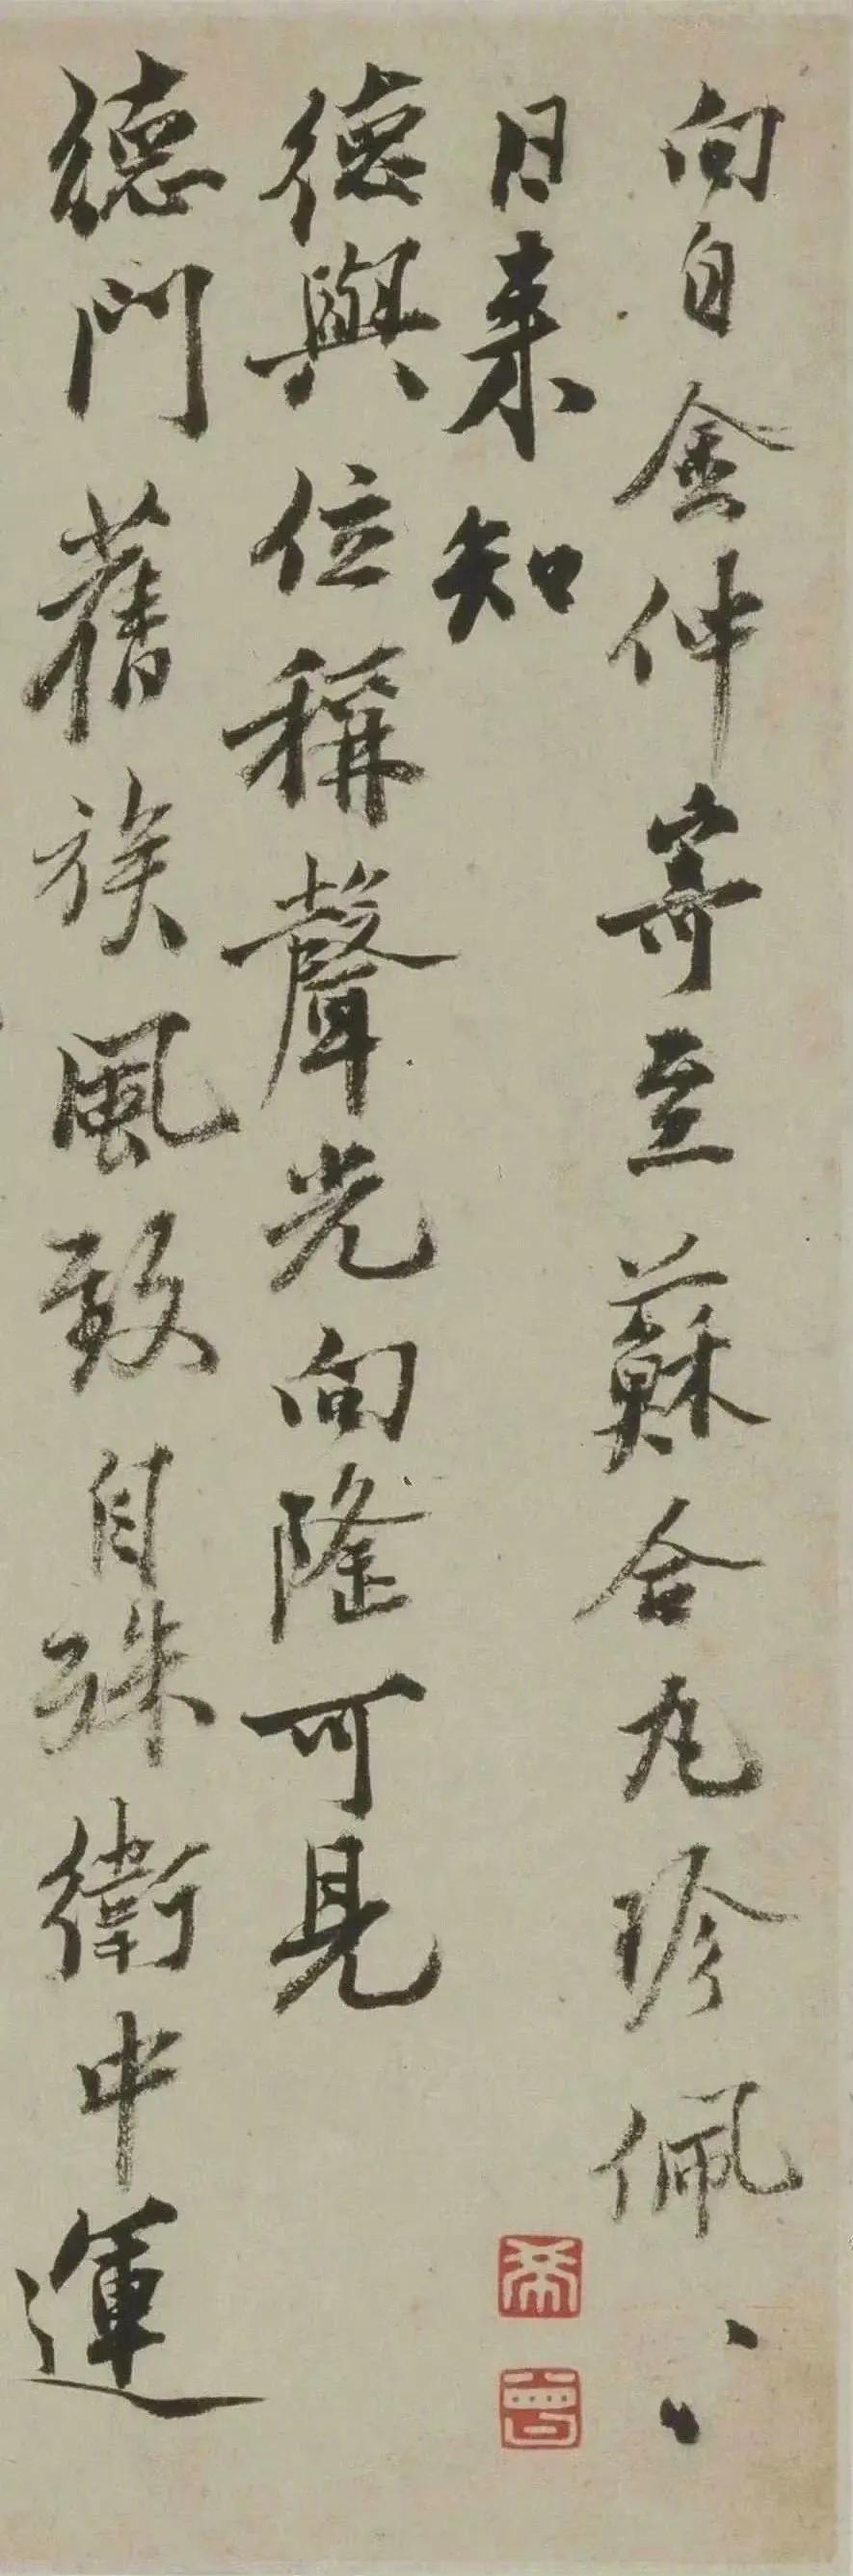 向自金仲寄至蘇合丸珍佩〻
日来知
德與位稱聲光向隆可見
德門舊族風致自殊衛中運